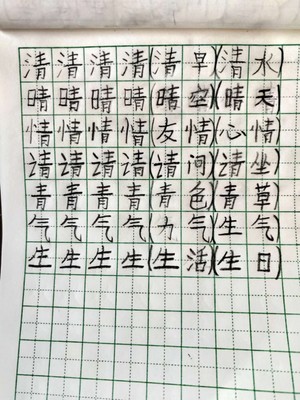 清清清清(清早)(清水)
晴晴晴晴(晴空)(晴天)
情情情情(友情)(心情)
请请请请(请问)(请坐)
青青青青(青色)(青草)
气气气气(力气)(生气)
生生生生(生活)(生日)